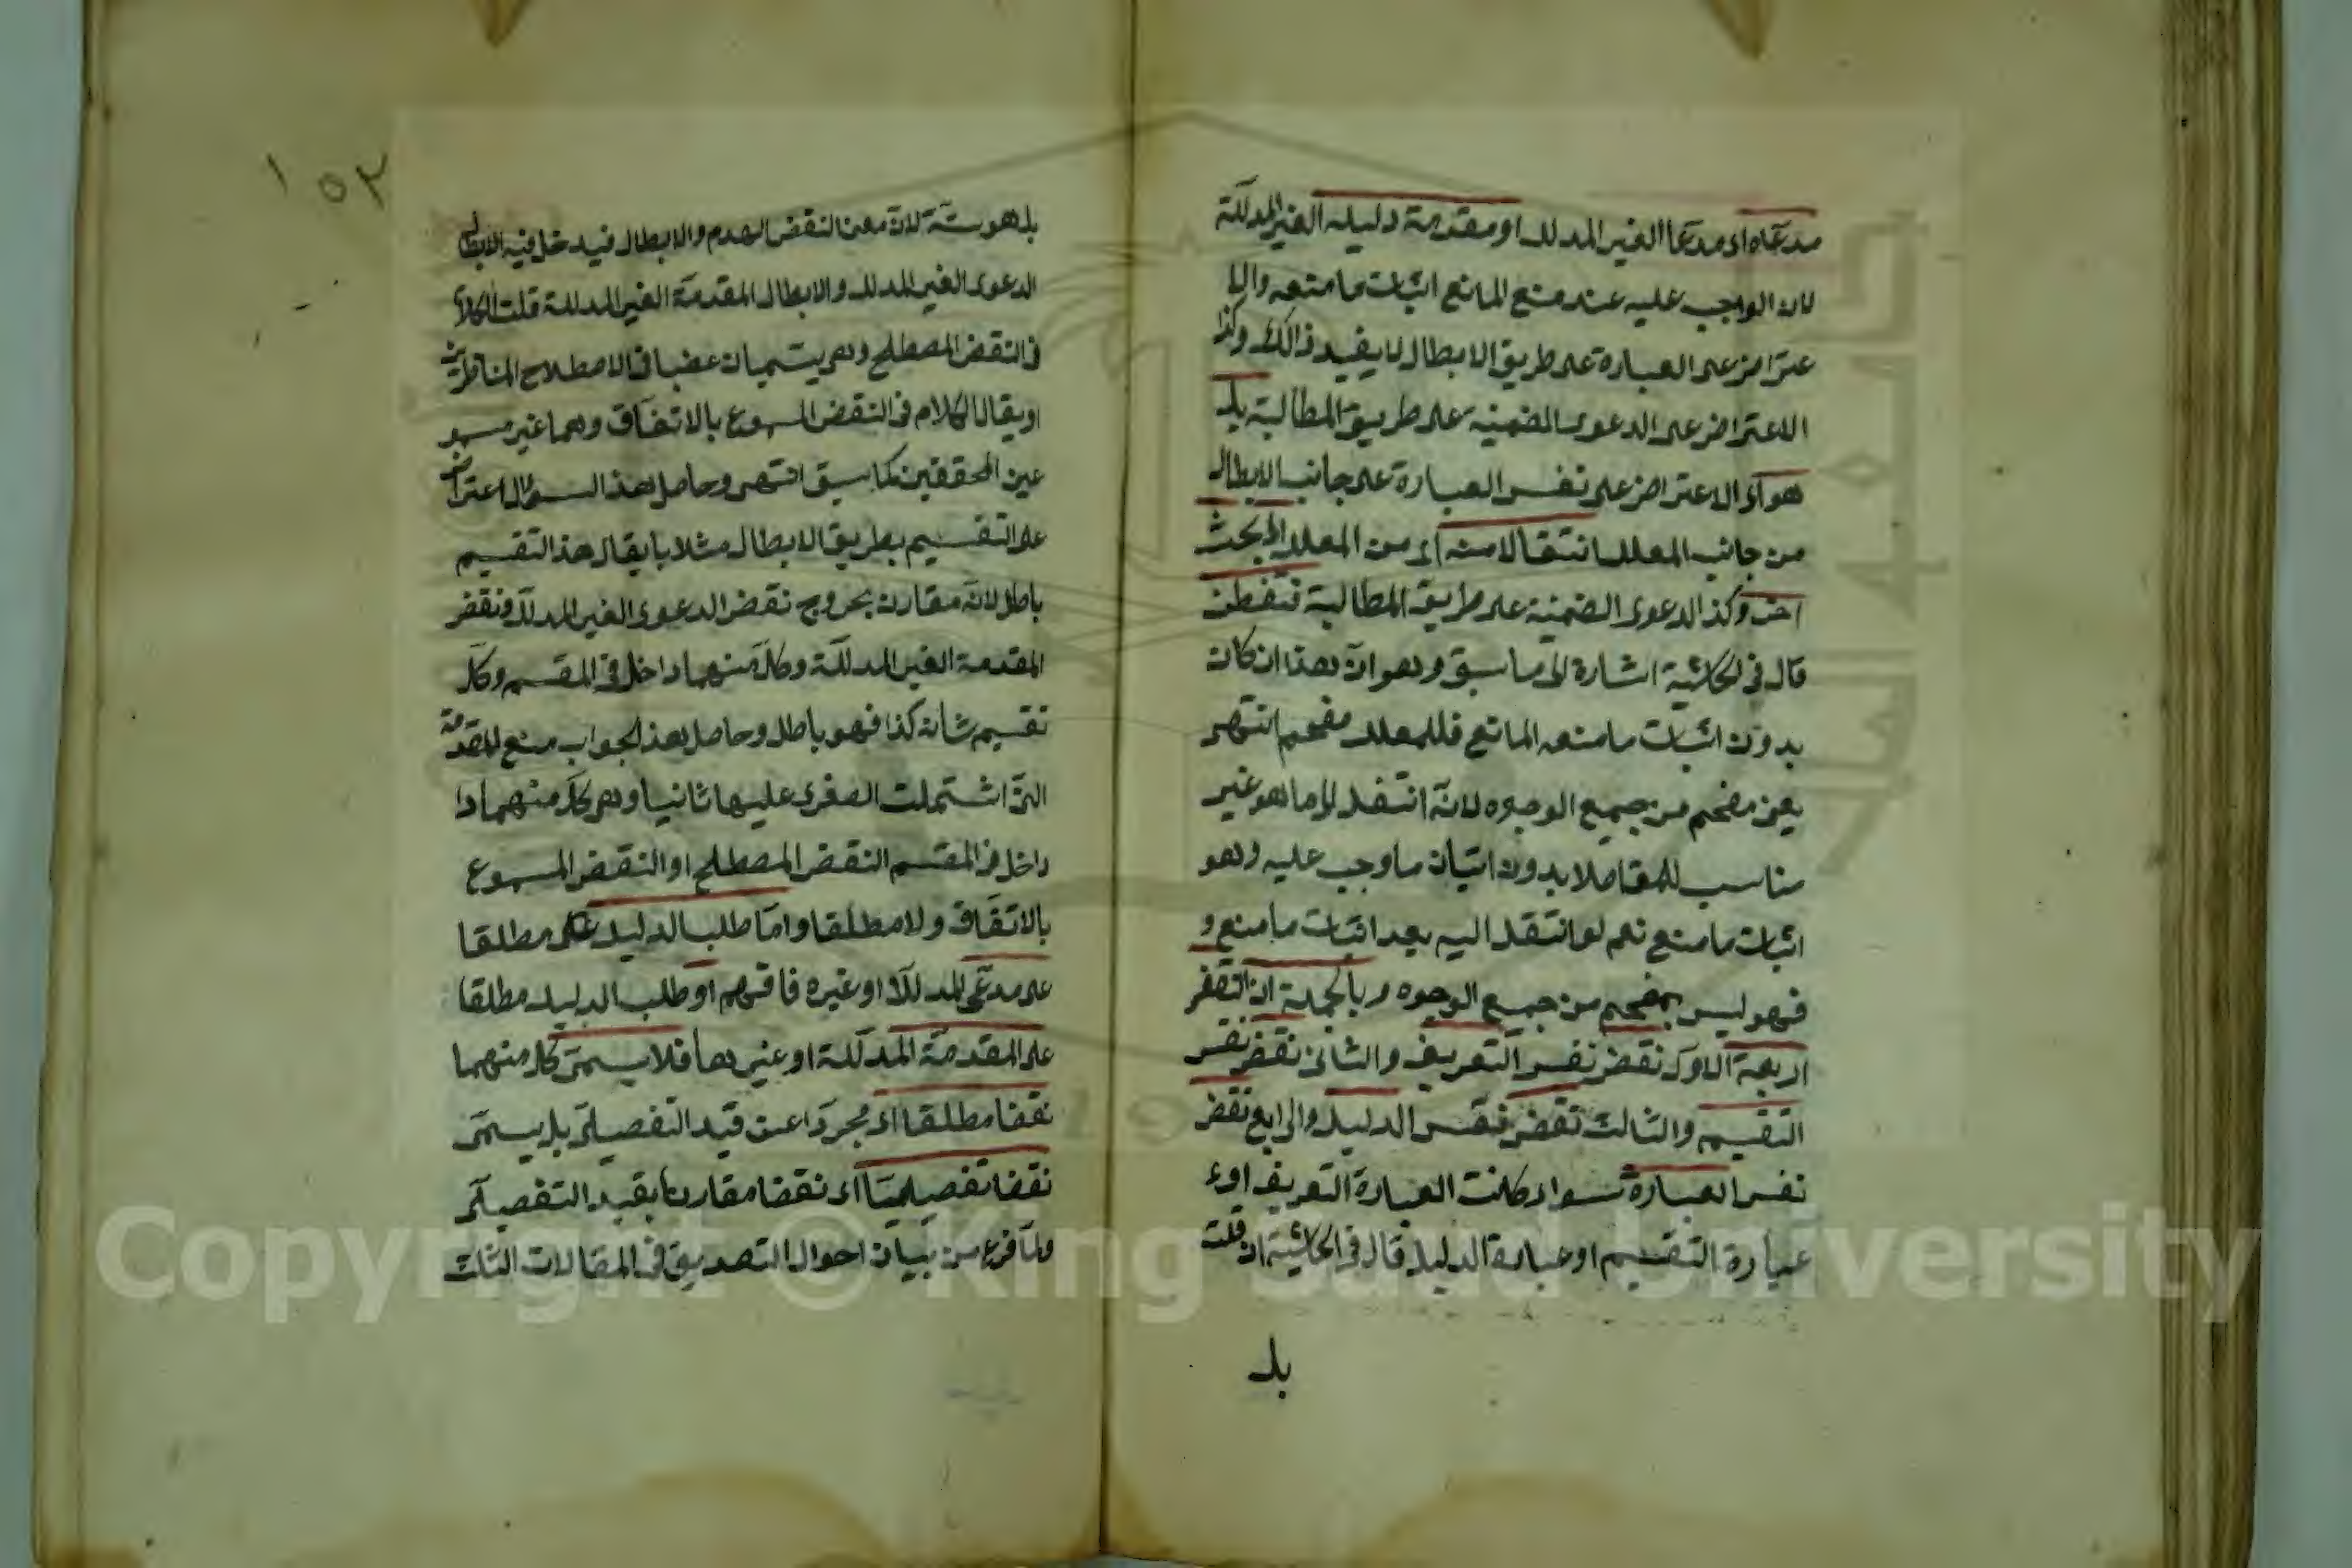 مدعاه اى مدعا الغير المدلل او مقدمة دليله الغير المدللة
لان الواجب عليه عند منع المانع اثبات ما منعه والا
عتراض على العبارة على طريق الابطال لا يفيد ذالك وكذا
الاعتراض على الدعوى الضمنية على طريق المطالبة بل
هو اى الاعتراض على نفس العبارة على جانب الابطال
من جانب المعلل انتقالا منه اى من المعلل الى بحث
اخر وكذ الدعوى الضمنية على طريق المطالبة فتفطن
قال فى الحاشية اشارة الى ما سبق وهو ان هذا ان كان
بدون اثبات ما منعه المانع فللمعلل مفحم انتهى
يعنى مفحم من جميع الوجوه لانه انتقل الى ما هو غير
مناسب للمقام لا بدون اتيان ما وجب عليه وهو
اثبات ما منع نعم لو انتقل اليه بعد اثبات ما منع و
فهو ليس بمفحم من جميع الوجوه وبالجملة ان النقض
اربعة الاول نقض نفس التعريف والثانى نقض نفس
التقسيم والثالث نقض نفس الدليل والرابع نقض
نفس العبارة سواء كانت العبارة التعريف اوء
عبارة التقسيم او عبارة الدليل قال فى الحاشية ان قلت
بل
١٥٢
بل هو ستة لان معنى النقض الهدم والابطال فيدخل فيه الابطال
الدعوى الغير المدلل والابطال المقدمة الغير المدللة قلت الكلام
فى النقض المصطلح وهى يسميان غصبا فى الاصطلاح المناظرين
او يقال الكلام فى النقض المسموع بالاتفاق وهما غير مسمو
عين المحققين كما سبق انتهى وحاصل هذ السؤال اعتراض
على التقسيم بطريق الابطال مثلا بايقال هذ التقسيم
باطل لانه مقارن بخروج نقض الدعوى الغير المدلل ونقض
المقدمة الغير المدللة وكل منهما داخل فى المقسم وكل
تقسيم شانه كذا فهو باطل وحاصل هذ الجواب منع المقدمة
التى اشتملت الصغرى عليها ثانيا وهى كل منهما دا
داخل فى المقسم النقض المصطلح او النقض المسموع
بالاتفاق ولا مطلقا واما طلب الدليل على مطلقا
على مدعى المدللا او غيره فافهم او طلب الدليل مطلقا
على المقدمة المدللة او غيرها فلا يسمى كل منهما
نقضا مطلقا اى مجردا عن قيد التفصيلى بل يسمى
نقضا تفصيليا اى نقضا مقارنا بقيد التفصيلى
ولما فرغ من بيان احوال التصديق فى المقالات الثلث
Copyright © King Saud University